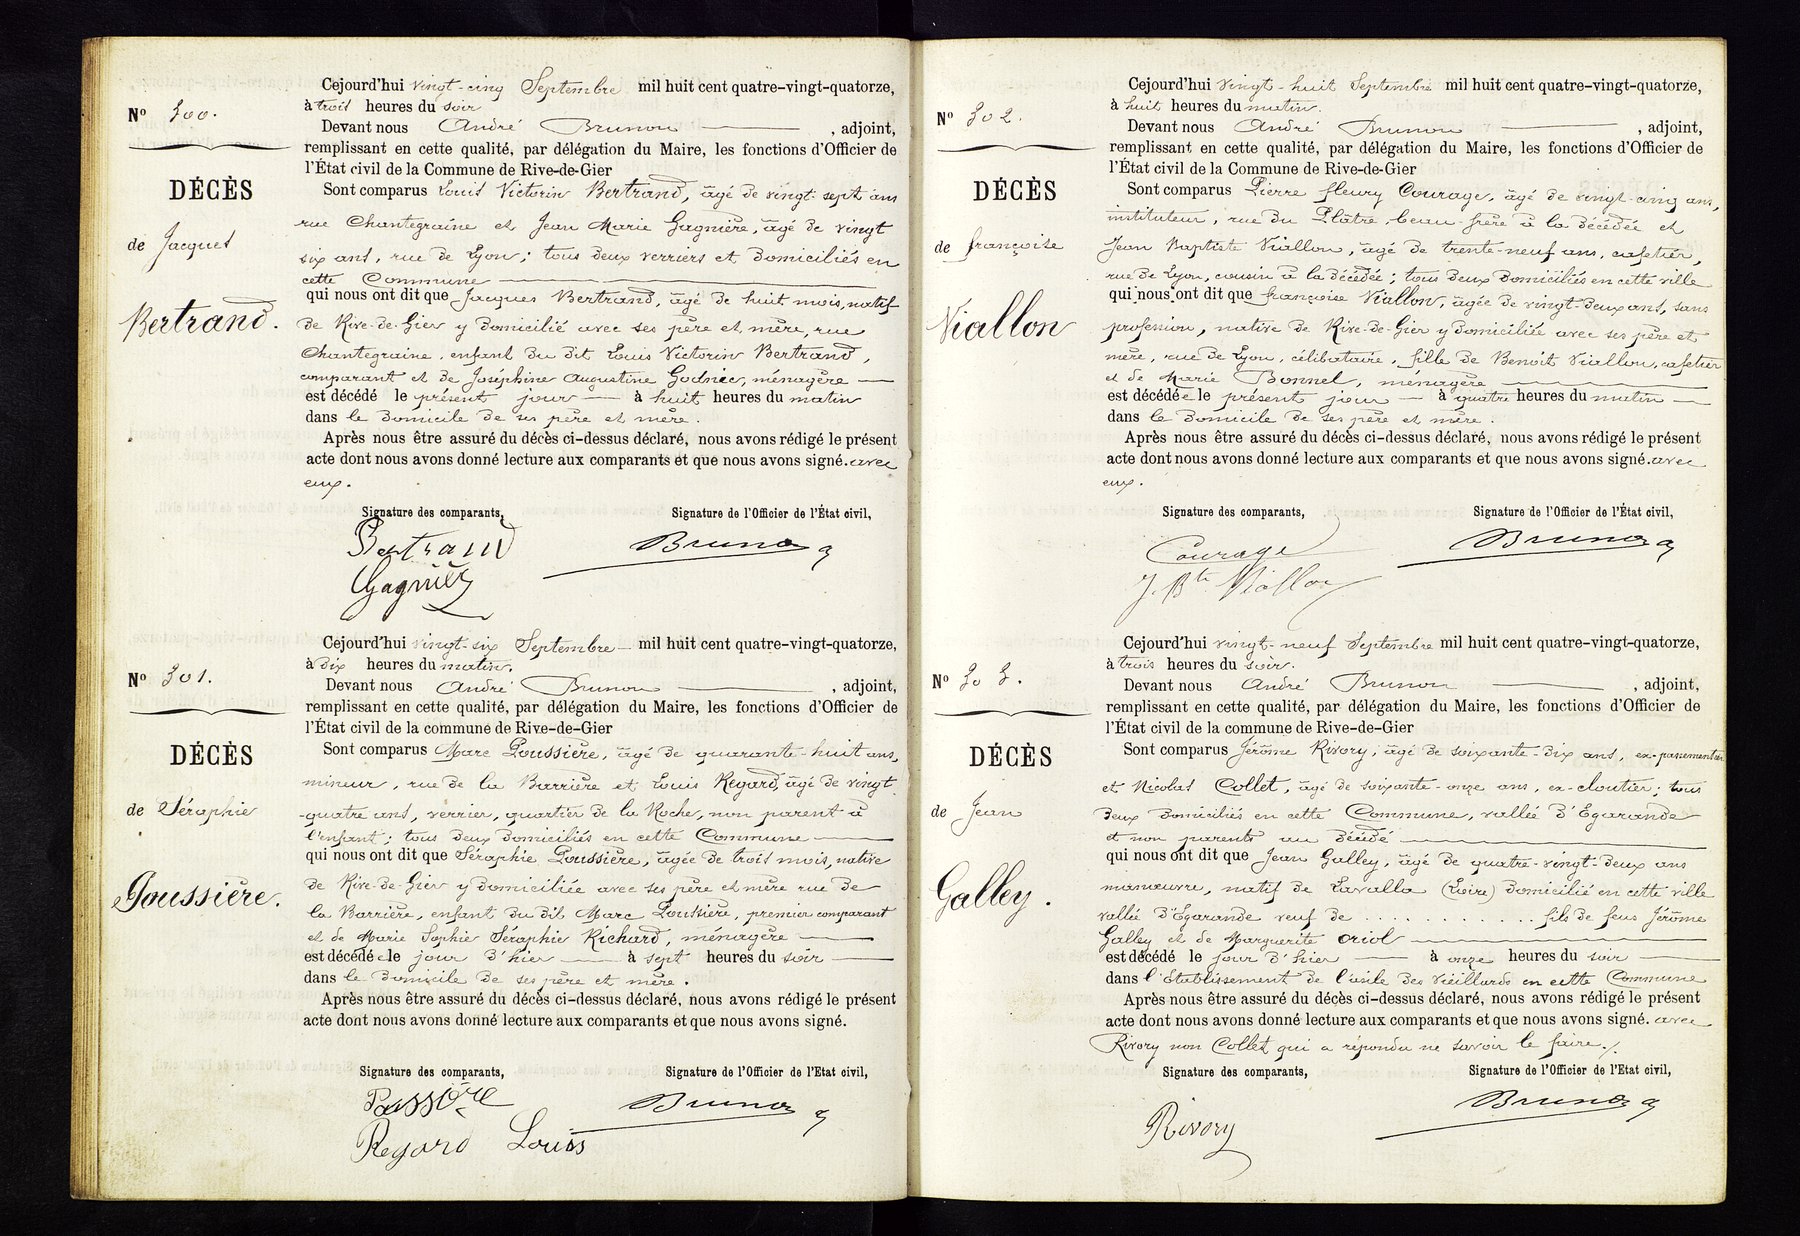 Cejourd'hui vingt-cinq Septembre mil huit cent quatre-vingt-quatorze,
à trois heures du soir
N° 300.
Devant nous André Brunon , adjoint,
remplissant en cette qualité, par délégation du Maire, les fonctions d'Officier de
l'État civil de la Commune de Rive-de-Gier
DÉCÈS
Sont comparus Louis Victorin Bertrand, âgé de vingt-sept ans
rue Chantegraine et Jean Marie Gagnière, âgé de vingt
de Jacques
six ans, rue de Lyon; tous deux verriers et domiciliés en
cette Commune
qui nous ont dit que Jacques Bertrand, âgé de huit mois, natif
Bertrand.
de Rive-de-Gier y domicilié avec ses père et mère, rue
Chantegraine, enfant du dit Louis Victorin Bertrand,
comparant et de Joséphine Augustine Godnier, ménagère
est décédé le présent jour à huit heures du matin
dans le domicile de ses père et mère.
Après nous être assuré du décès ci-dessus déclaré, nous avons rédigé le présent
acte dont nous avons donné lecture aux comparants et que nous avons signé. avec
eux.
Signature des comparants, Signature de l'Officier de l'État civil,
Bertrand Brunon
Gagnière
Cejourd'hui vingt-six Septembre mil huit cent quatre-vingt-quatorze,
à dix heures du matin.
N° 301.
Devant nous André Brunon , adjoint,
remplissant en cette qualité, par délégation du Maire, les fonctions d'Officier de
l'État civil de la commune de Rive-de-Gier
DÉCÈS
Sont comparus Marc Goussière, âgé de quarante-huit ans,
mineur, rue de la Barrière et Louis Regard, âgé de vingt
de Séraphie
-quatre ans, verrier, quartier de la Roche, non parent à
l'enfant; tous deux domiciliés en cette Commune
qui nous ont dit que Séraphie Goussière, âgée de trois mois, native
Goussière.
de Rive-de-Gier y domiciliée avec ses père et mère rue de
la Barrière, enfant du dit Marc Goussière, premier comparant
et de Marie Sophie Séraphie Richard, ménagère
est décédée le jour d'hier à sept heures du soir
dans le domicile de ses père et mère.
Après nous être assuré du décès ci-dessus déclaré, nous avons rédigé le présent
acte dont nous avons donné lecture aux comparants et que nous avons signé.
Signature des comparants, Signature de l'Officier de l'Etat civil,
Brunon
Regard Louis
Cejourd'hui vingt-huit Septembre mil huit cent quatre-vingt-quatorze,
à huit heures du matin.
N° 302.
Devant nous André Brunon , adjoint,
remplissant en cette qualité, par délégation du Maire, les fonctions d'Officier de
l'État civil de la Commune de Rive-de-Gier
DÉCÈS
Sont comparus Pierre fleury Courage, âgé de vingt-cinq ans,
instituteur, rue du Plâtre, beau-frère à la décédée et
de françoise
Jean Baptiste Viallon, âgé de trente-neuf ans, cafetier,
rue de Lyon, cousin à la décédée; tous deux domiciliés en cette ville
qui nous ont dit que françoise Viallon, âgée de vingt-deux ans, sans
Viallon
profession, native de Rive-de-Gier y domiciliée avec ses père et
mère, rue de Lyon, célibataire, fille de Benoît Viallon, cafetier
et de Marie Bonnel, ménagère
est décédée le présent jour à quatre heures du matin
dans le domicile de ses père et mère.
Après nous être assuré du décès ci-dessus déclaré, nous avons rédigé le présent
acte dont nous avons donné lecture aux comparants et que nous avons signé. avec
eux.
Signature des comparants, Signature de l'Officier de l'État civil,
Courage Brunon
J. Bte Viallon
Cejourd'hui vingt-neuf Septembre mil huit cent quatre-vingt-quatorze,
à trois heures du soir.
N° 303.
Devant nous André Brunon , adjoint,
remplissant en cette qualité, par délégation du Maire, les fonctions d'Officier de
l'État civil de la commune de Rive-de-Gier
DÉCÈS
Sont comparus Jérôme Rivory, âgé de soixante-dix ans, ex-passementier
et Nicolas Collet, âgé de soixante-onze ans, ex-cloutier; tous
de Jean
deux domiciliés en cette Commune, vallée d'Egarande
et non parents au décédé
qui nous ont dit que Jean Galley, âgé de quatre-vingt-deux ans
Galley.
manœuvre, natif de Lavalla (Loire) domicilié en cette ville
vallée d'Egarande veuf de . . . . . . . . . . . . fils de feus Jérôme
Galley et de Marguerite Oriol
est décédé le jour d'hier à onze heures du soir
dans l'Etablissement de l'asile des vieillards en cette Commune
Après nous être assuré du décès ci-dessus déclaré, nous avons rédigé le présent
acte dont nous avons donné lecture aux comparants et que nous avons signé. avec
Rivory non Collet qui a répondu ne savoir le faire./.
Signature des comparants, Signature de l'Officier de l'Etat civil,
Rivory Brunon